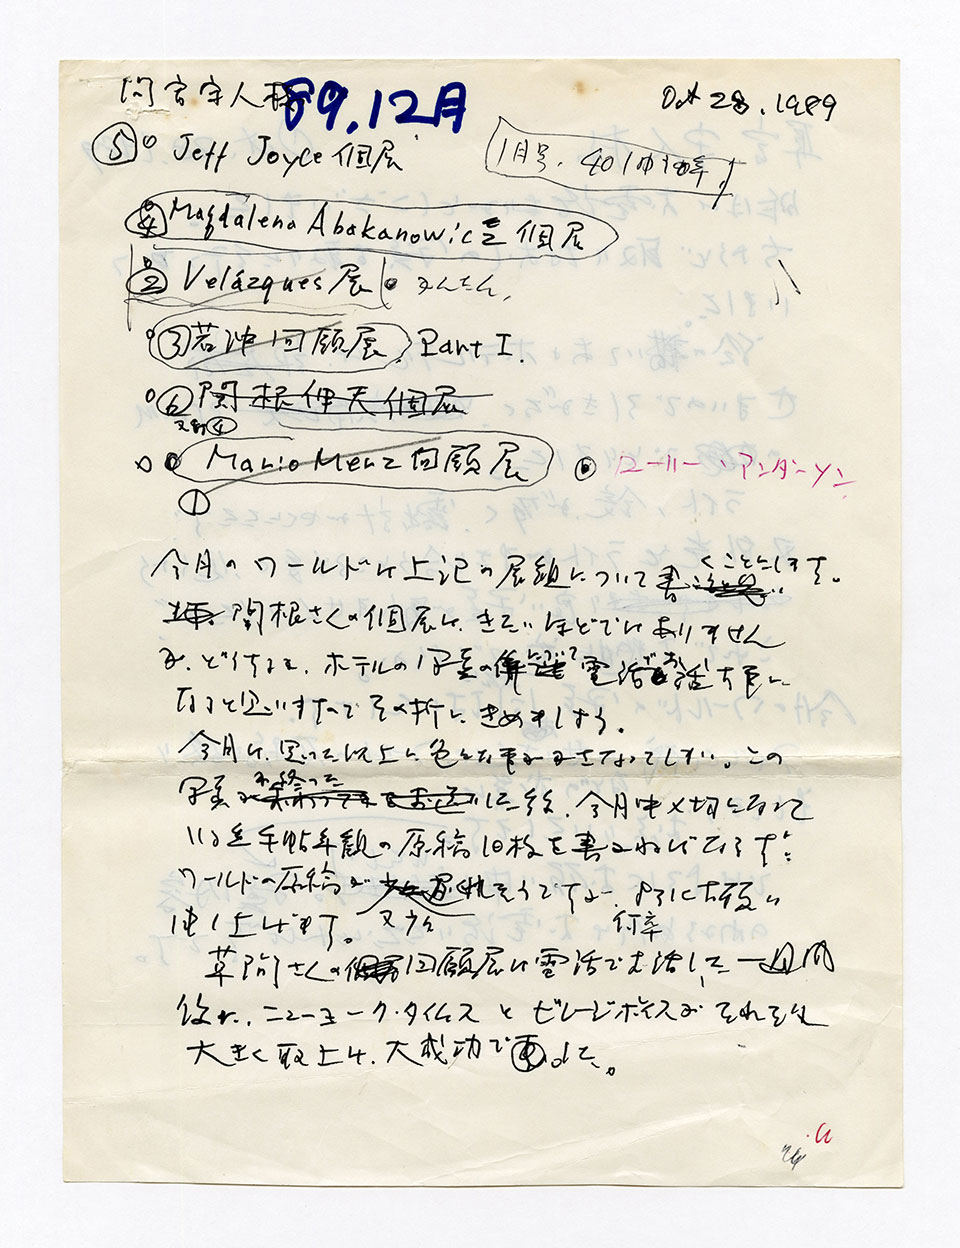 89.12月
Oct 28. 1989
⑤ Jeff Joyce 個展
1月号、40
④ Magdalena Abakanowicz 個展
② Velázques 展
③ 若冲回顧展. Part I.
⑥ 関根伸夫個展
又は④
Mario Merz 回顧展
①
ローリー・アンダーソン
今月のワールドは上記の展組について書くことにします。
関根さんの個展は、きたいほどではありません
が、どうするか、ホテルの写真の件について電話でお話する事に
なると思いますのでその折に、きめましょう。
今月は、思った以上に色々な事がかさなってしまい、この
写真が終った後、今月中〆切になって
いる美手帖年観の原稿10枚を書かねばならず、
ワールドの原稿が遅れそうですが、何卒
申し上げます。
草間さんの回顧展は電話でお話した一週間
後に、ニューヨーク・タイムスとビレージボイスがそれぞれ
大きく取上げ、大成功でした。